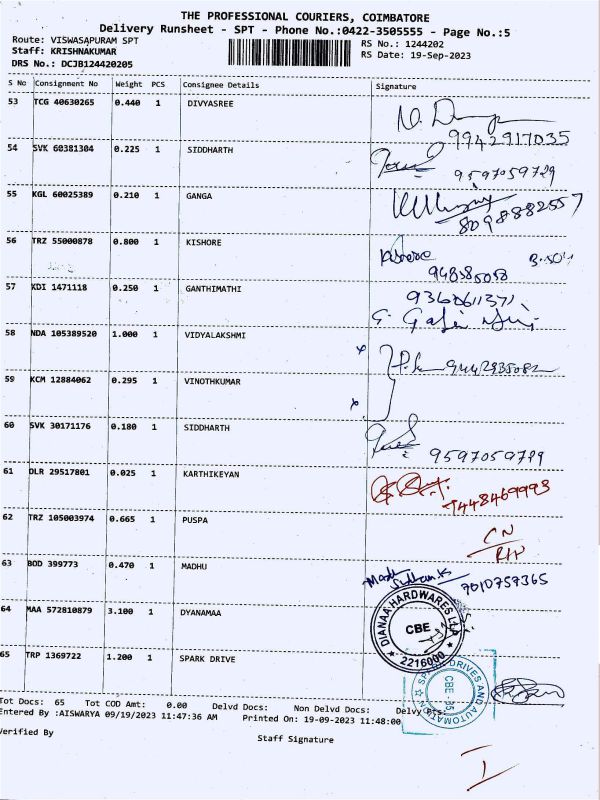 THE PROFESSIONAL COURIERS, COIMBATORE
Delivery Runsheet - SPT - Phone No.:0422-3505555 - Page No.:5
Route: VISWASAPURAM SPT
Staff: KRISHNAKUMAR
DRS No.: DCJB124420205
RS No.: 1244202
RS Date: 19-Sep-2023
S No Consignment No Weight PCS Consignee Details Signature
53 TCG 40630265 0.440 1 DIVYASREE
9942917035
54 SVK 60381304 0.225 1 SIDDHARTH
9597059729
55 KGL 60025389 0.210 1 GANGA
8098882557
56 TRZ 55000878 0.800 1 KISHORE
Kishore
948385058
57 KDI 1471118 0.250 1 GANTHIMATHI
9360611371
58 NDA 105389520 1.000 1 VIDYALAKSHMI
59 KCM 12884062 0.295 1 VINOTHKUMAR
60 SVK 30171176 0.180 1 SIDDHARTH
9597059789
61 DLR 29517801 0.025 1 KARTHIKEYAN
9448469993
62 TRZ 105003974 0.665 1 PUSPA
CN
63 BOD 399773 0.470 1 MADHU
7010757365
64 MAA 572810879 3.100 1 DYANAMAA
DIANAA HARDWARES LLP
CBE
2216000
65 TRP 1369722 1.200 1 SPARK DRIVE
SPARK DRIVES AND AUTOMATION
CBE - 35
Tot Docs: 65 Tot COD Amt: 0.00 Delvd Docs: Non Delvd Docs: Delvy Pts:
Entered By :AISWARYA 09/19/2023 11:47:36 AM Printed On: 19-09-2023 11:48:00
Verified By
Staff Signature